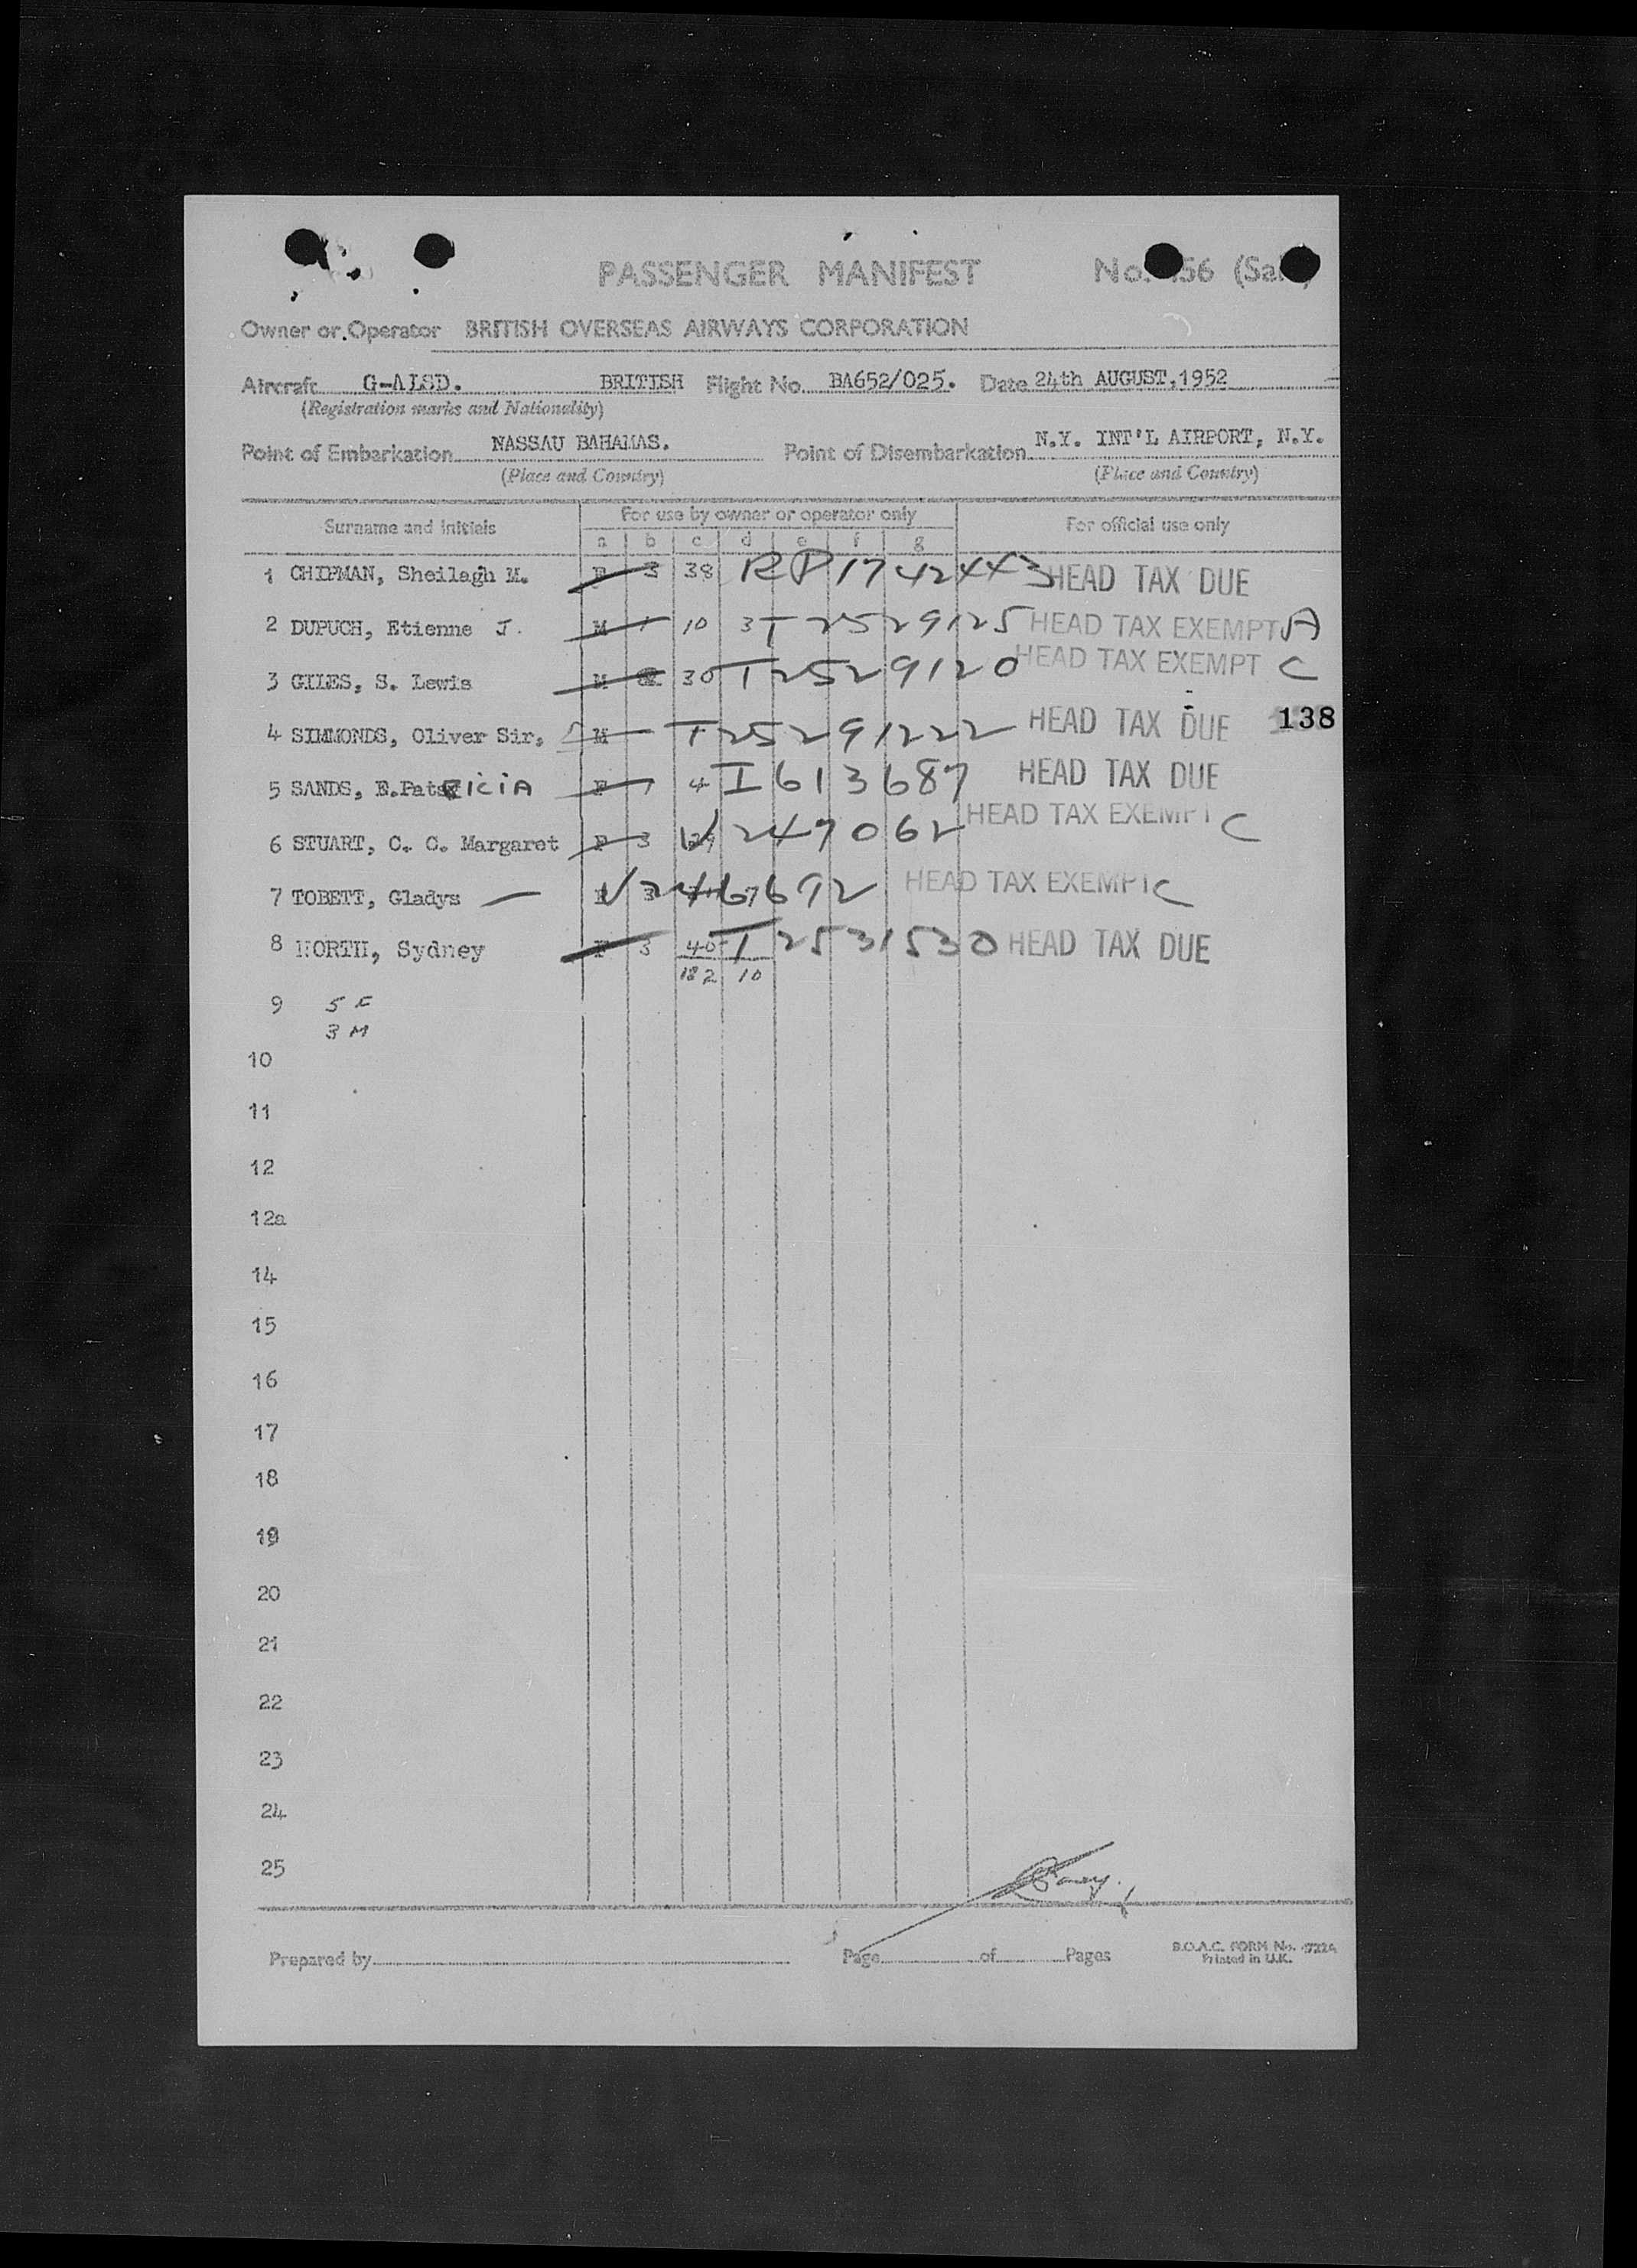 PASSENGER MANIFEST No. 56
Owner or Operator BRITISH OVERSEAS AIRWAYS CORPORATION
Aircraft G-ALSD. BRITISH Flight No. BA652/025. Date 24th AUGUST, 1952
(Registration marks and Nationality)
Point of Embarkation NASSAU BAHAMAS. Point of Disembarkation N.Y. INT'L AIRPORT, N.Y.
(Place and Country) (Place and Country)
Surname and initials For use by owner or operator only For official use only
a b c d e f g
1 CHIPMAN, Sheilagh M. F 3 38 RP1742443 HEAD TAX DUE
2 DUPUCH, Etienne J. M 1 10 3 T2529125 HEAD TAX EXEMPT A
3 GILES, S. Lewis M 30 T2529120 HEAD TAX EXEMPT C
4 SIMMONDS, Oliver Sir, M T25291222 HEAD TAX DUE 138
5 SANDS, E.Patricia F 1 4 I613687 HEAD TAX DUE
6 STUART, C. C. Margaret F 3 V247062 HEAD TAX EXEMPT C
7 TOBETT, Gladys F 3 HEAD TAX EXEMPT C
8 NORTH, Sydney F 3 40 T2531530 HEAD TAX DUE
182 10
9 5 F
3 M
10
11
12
12a
14
15
16
17
18
19
20
21
22
23
24
25
Prepared by Page of Pages B.O.A.C. FORM No.
Printed in U.K.